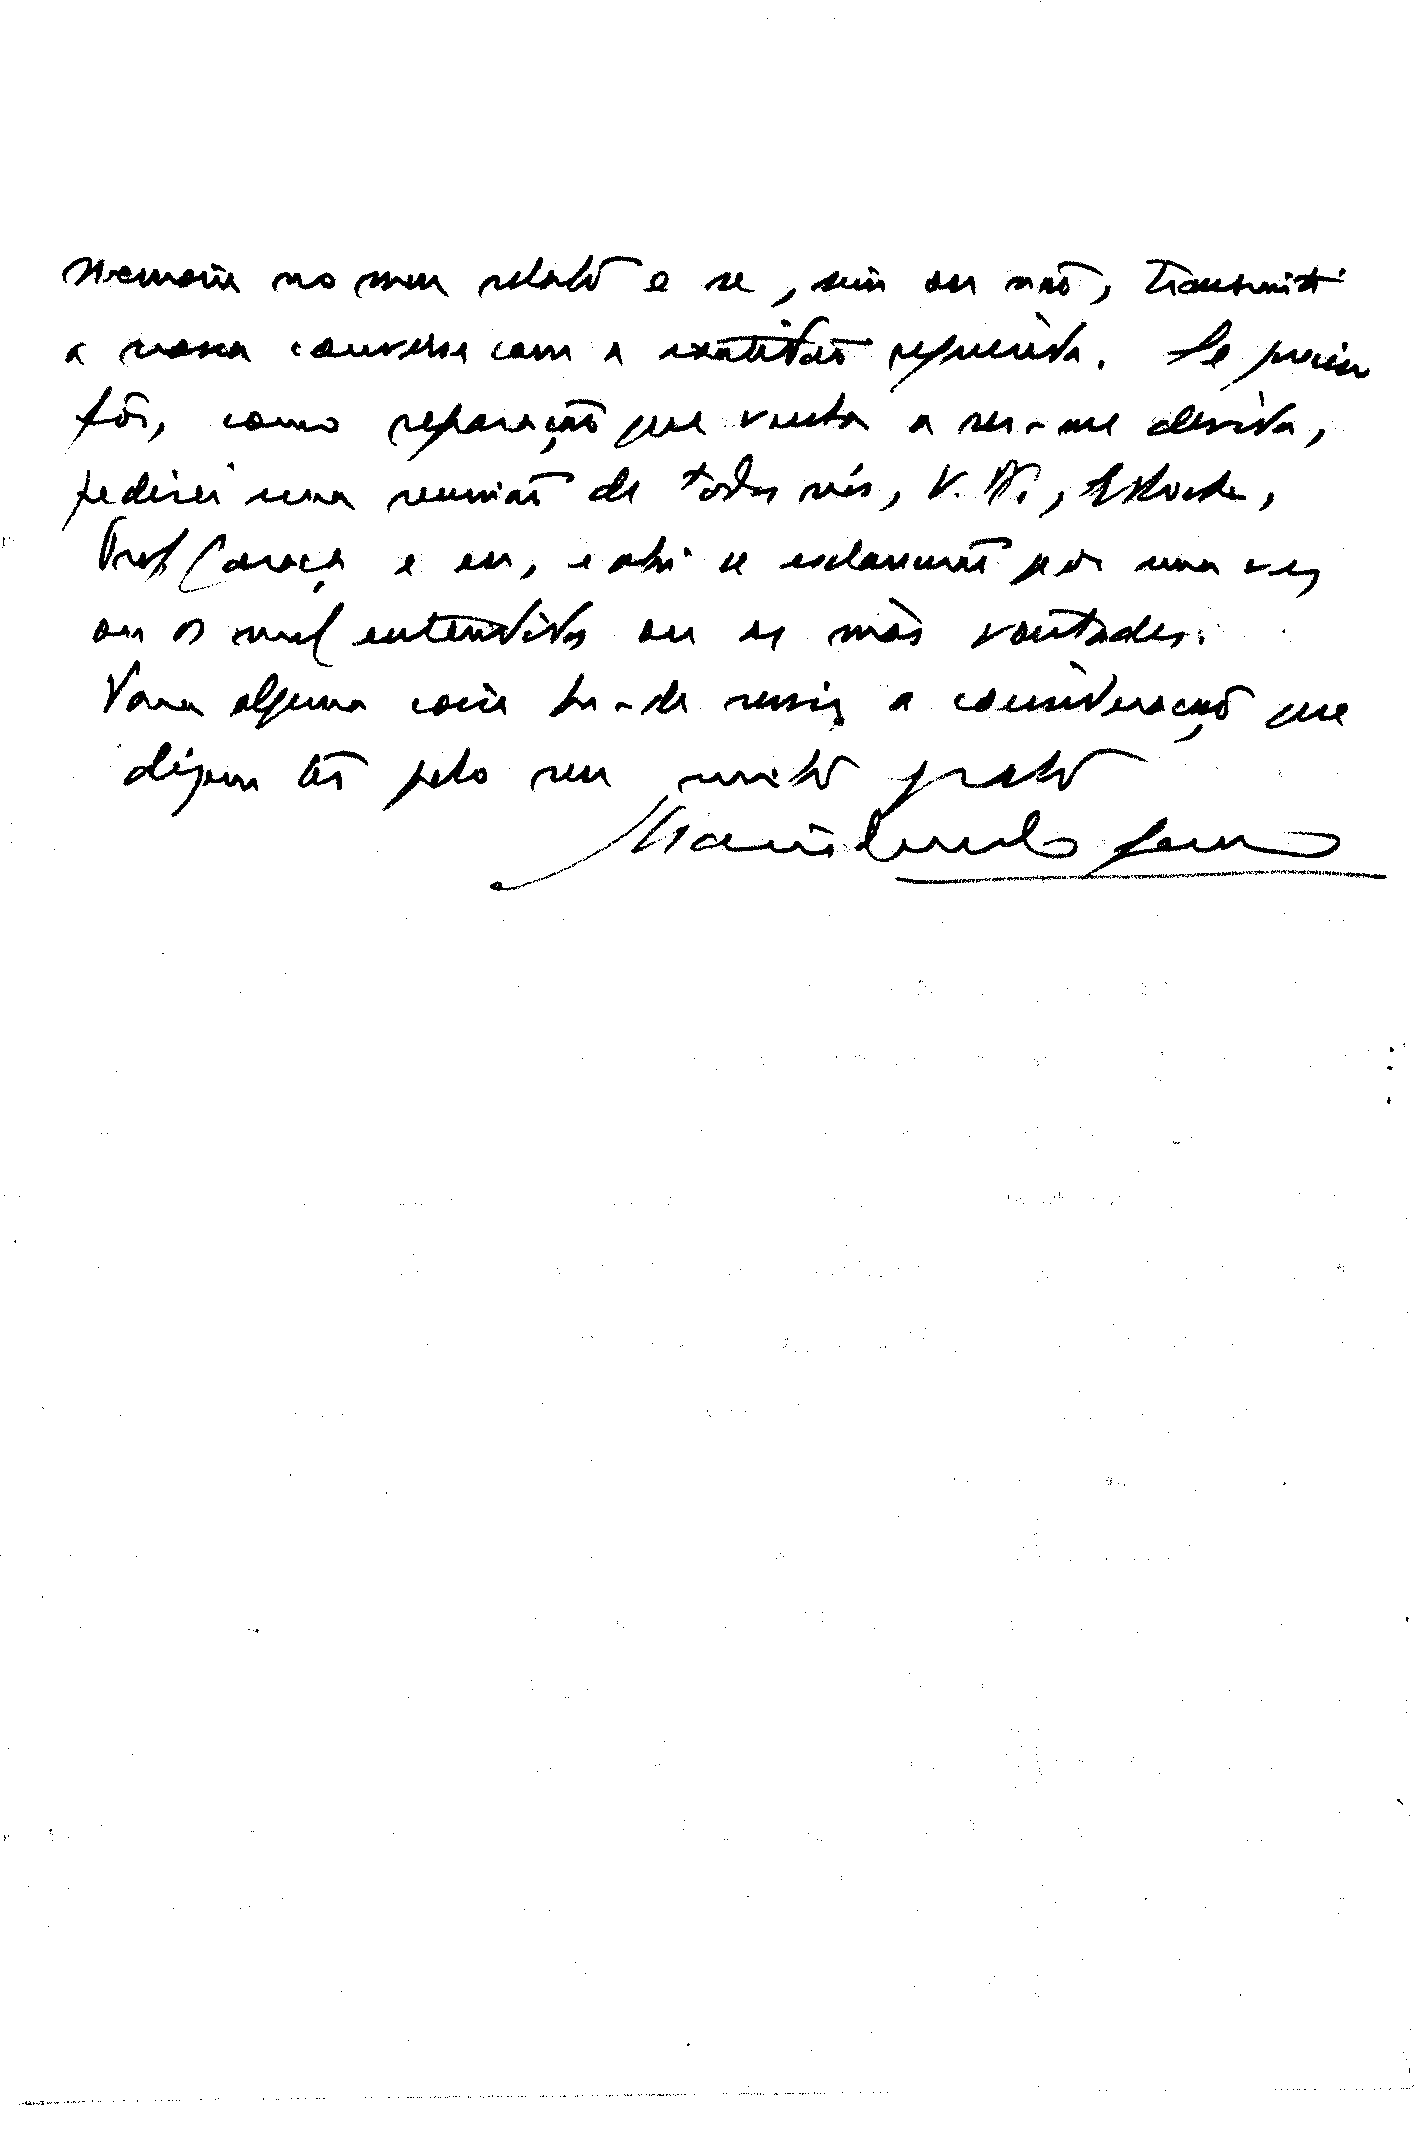 memoria no meu relato e se, sim ou não, transmiti
a nossa conversa com a exatidão requerida. Se preciso
fôr, como reparação que venha a ser-me devida,
pedirei uma reunião de todos nós, V. ,
Prof Caraça e eu, e ahi se esclarecerá por uma vez
ou os mal entendidos ou as más vontades.
Para alguma coisa ha-de servir a consideração que
diz pelo seu muito grato